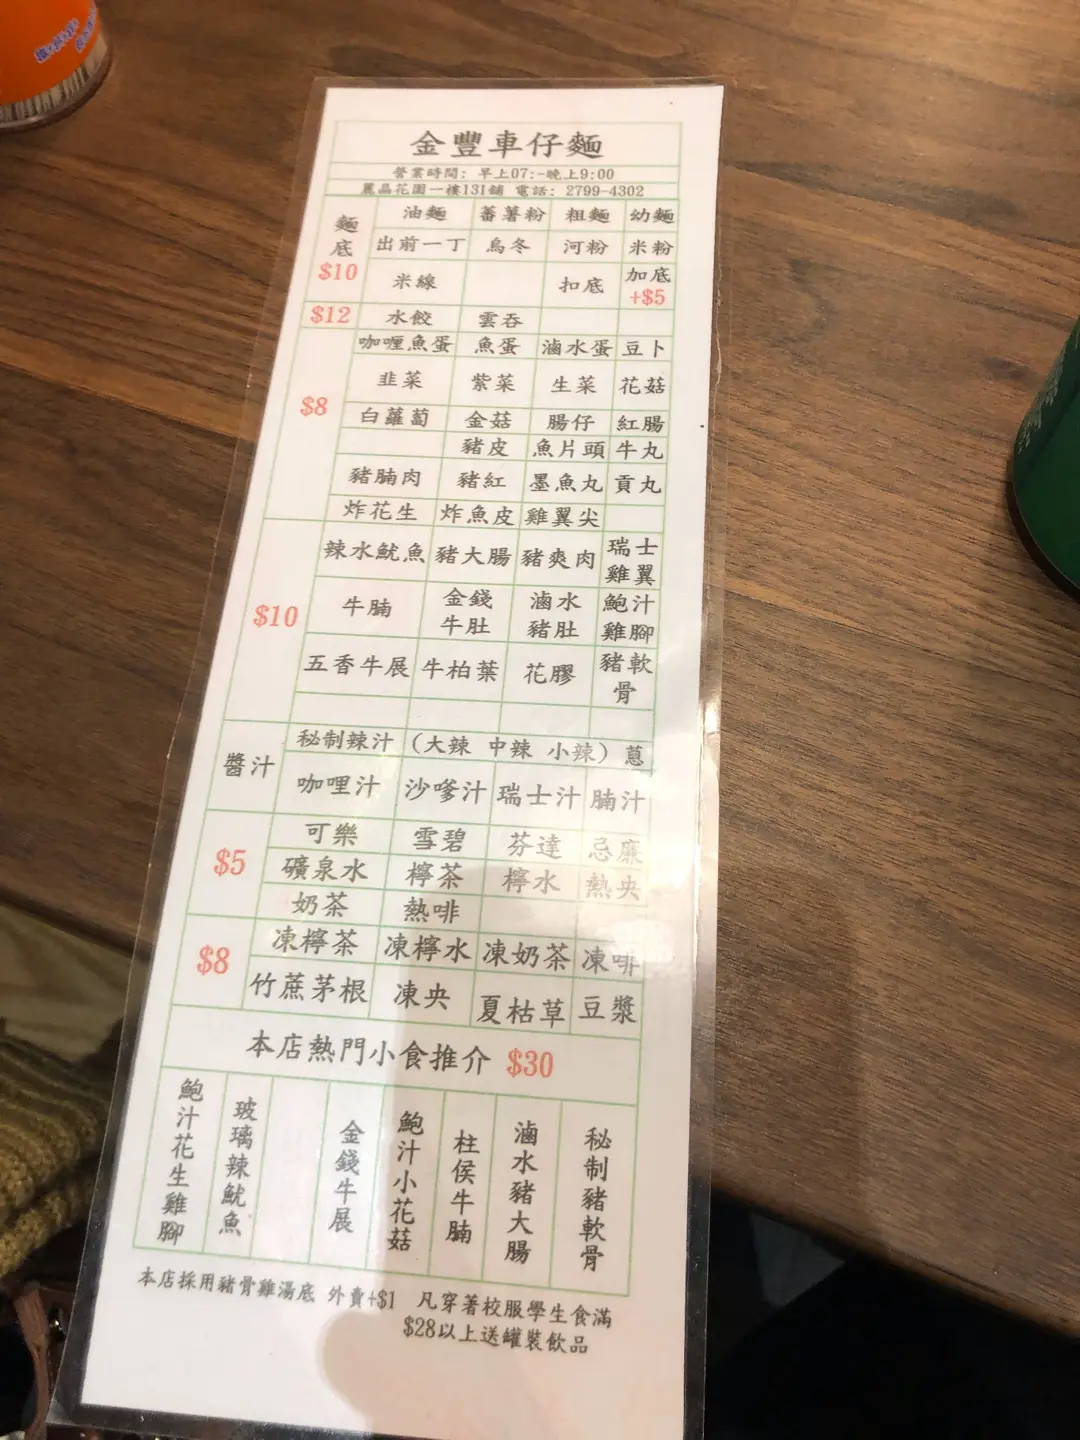 金豐車仔麵
營業時間: 早上07:-晚上9:00
麗晶花園一樓131舖 電話: 2799-4302
麵底 $10
油麵 蕃薯粉 粗麵 幼麵
出前一丁 烏冬 河粉 米粉
米線 扣底 加底+$5
$12 水餃 雲吞
$8
咖喱魚蛋 魚蛋 滷水蛋 豆卜
韭菜 紫菜 生菜 花菇
白蘿蔔 金菇 腸仔 紅腸
豬皮 魚片頭 牛丸
豬腩肉 豬紅 墨魚丸 貢丸
炸花生 炸魚皮 雞翼尖
$10
辣水魷魚 豬大腸 豬爽肉 瑞士雞翼
牛腩 金錢牛肚 滷水豬肚 鮑汁雞腳
五香牛展 牛柏葉 花膠 豬軟骨
醬汁
秘制辣汁 (大辣 中辣 小辣) 蔥
咖哩汁 沙嗲汁 瑞士汁 腩汁
$5
可樂 雪碧 芬達 忌廉
礦泉水 檸茶 檸水 熱央
奶茶 熱啡
$8
凍檸茶 凍檸水 凍奶茶 凍啡
竹蔗茅根 凍央 夏枯草 豆漿
本店熱門小食推介 $30
鮑汁花生雞腳
玻璃辣魷魚
金錢牛展
鮑汁小花菇
柱侯牛腩
滷水豬大腸
秘制豬軟骨
本店採用豬骨雞湯底 外賣+$1 凡穿著校服學生食滿
$28以上送罐裝飲品